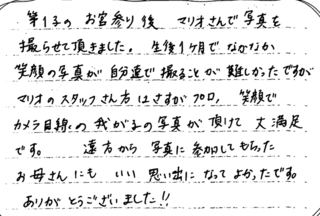 第1子のお宮参り後 マリオさんで写真を
撮らせて頂きました。 生後1ヶ月でなかなか
笑顔の写真が自分達で撮ることが難しかったですが
マリオのスタッフさん方はさすがプロ、 笑顔で
カメラ目線の我が子の写真が頂けて 大満足
です。 遠方から 写真に参加してもらった
お母さんにも いい 思い出に なって よかったです。
ありがとうございました!!